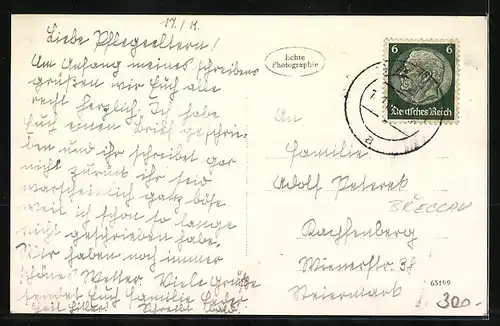 17./11.
Liebe Pflegeeltern!
Am Anfang meines schreibens
grüßen wir Euch alle
recht herzlich. Ich habe
Euch einen Brief geschrie-
ben und ihr schreibet gar
nicht zurück ihr seid
warscheinlich ganz böse
weil ich schon so lange
nicht geschrieben habe.
Wir haben noch immer
schönes Wetter. Viele Grüße
sendet Euch Familie
Heil Hitler! Schreibt bald.
Echte
Photographie
6 6
Deutsches Reich
a
An
Familie
Adolf Peterek
BŘECLAV
Wienerstr. 38
Steiermark
63199
300-